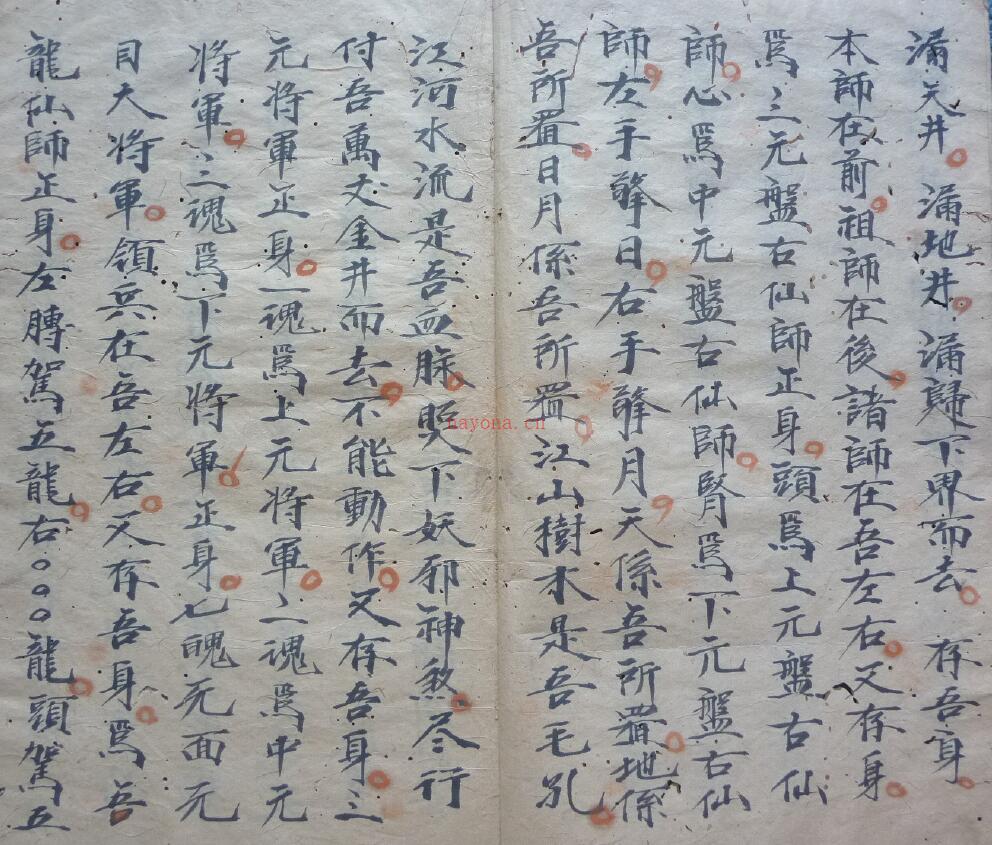 滿天井滿地井滿歸下界而去存吾身
本師在前祖師在後諸師在吾左右又存身
爲三元盤古仙師正身頭爲上元盤古仙
師心爲中元盤古仙師腎爲下元盤古仙
師左手擎日右手擎月天係吾所置地係
吾所置日月係吾所置江山樹木是吾毛孔
江河水流是吾血脉毀下妖邪神煞尽行
付吾萬丈金井而去不能動作又存吾身三
元將軍正身一魂爲上元將軍二魂爲中元
將軍三魂爲下元將軍正身七魄无面元
目大將軍領兵在吾左右又存吾身爲吾
龍仙師正身左膊駕五龍右〇〇〇龍頭駕五
nayona.cn